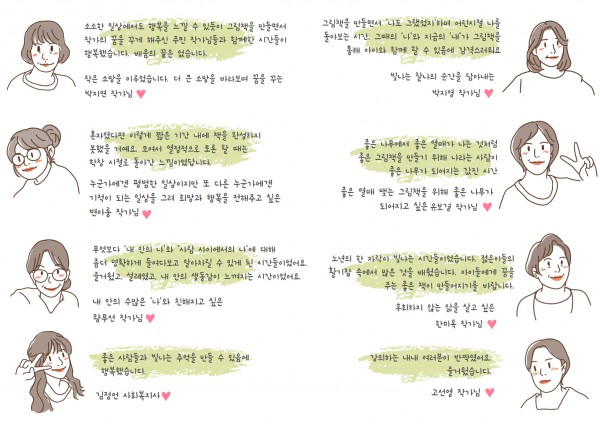 소소한 일상에서도 행복을 느낄 수 있듯이 그림책을 만들면서
작가의 꿈을 꾸게 해주신 주민 작가님들과 함께한 시간들이
행복했습니다. 배움의 끝은 없습니다.
작은 소망을 이루었습니다. 더 큰 소망을 바라보며 꿈을 꾸는
박지연 작가님
혼자였다면 이렇게 짧은 기간 내에 책을 완성하지
못했을 거예요. 모여서 열정적으로 토론 할 때는
학창 시절로 돌아간 느낌이었답니다.
누군가에겐 평범한 일상이지만 또 다른 누군가에겐
기적이 되는 일상을 그려 희망과 행복을 전해주고 싶은
변아롬 작가님
무엇보다 '내 안의 나'와 '사람 사이에서의 나'에 대해
좀더 명확하게 들여다보고 알아차릴 수 있게 된 시간들이었어요.
즐거웠고, 설레였고, 내 안의 생동감이 느껴지는 시간이었어요
내 안의 수많은 '나'와 친해지고 싶은
황무선 작가님
좋은 사람들과 빛나는 추억을 만들 수 있음에
행복했습니다.
김정언 사회복지사
그림책을 만들면서 '나도 그랬었지'하며 어린시절 나를
돌아보는 시간. 그때의 '나'와 지금의 '내'가 그림책을
통해 아이와 함께 할 수 있음에 감격스러워요
빛나는 찰나의 순간을 담아내는
박지영 작가님
좋은 나무에서 좋은 열매가 나는 것처럼
좋은 그림책을 만들기 위해 나라는 사람이
좋은 나무가 되어지는 값진 시간
좋은 열매 맺는 그림책을 위해 좋은 나무가
되어지고 싶은 유보경 작가님
노년의 한 자락이 빛나는 시간들이었습니다. 젊은이들의
활기참 속에서 많은 것을 배웠습니다. 아이들에게 꿈을
주는 좋은 책이 만들어지기를 바랍니다.
후회하지 않는 삶을 살고 싶은
한미옥 작가님
강의하는 내내 여러분이 반짝였어요.
즐거웠습니다.
고선영 작가님